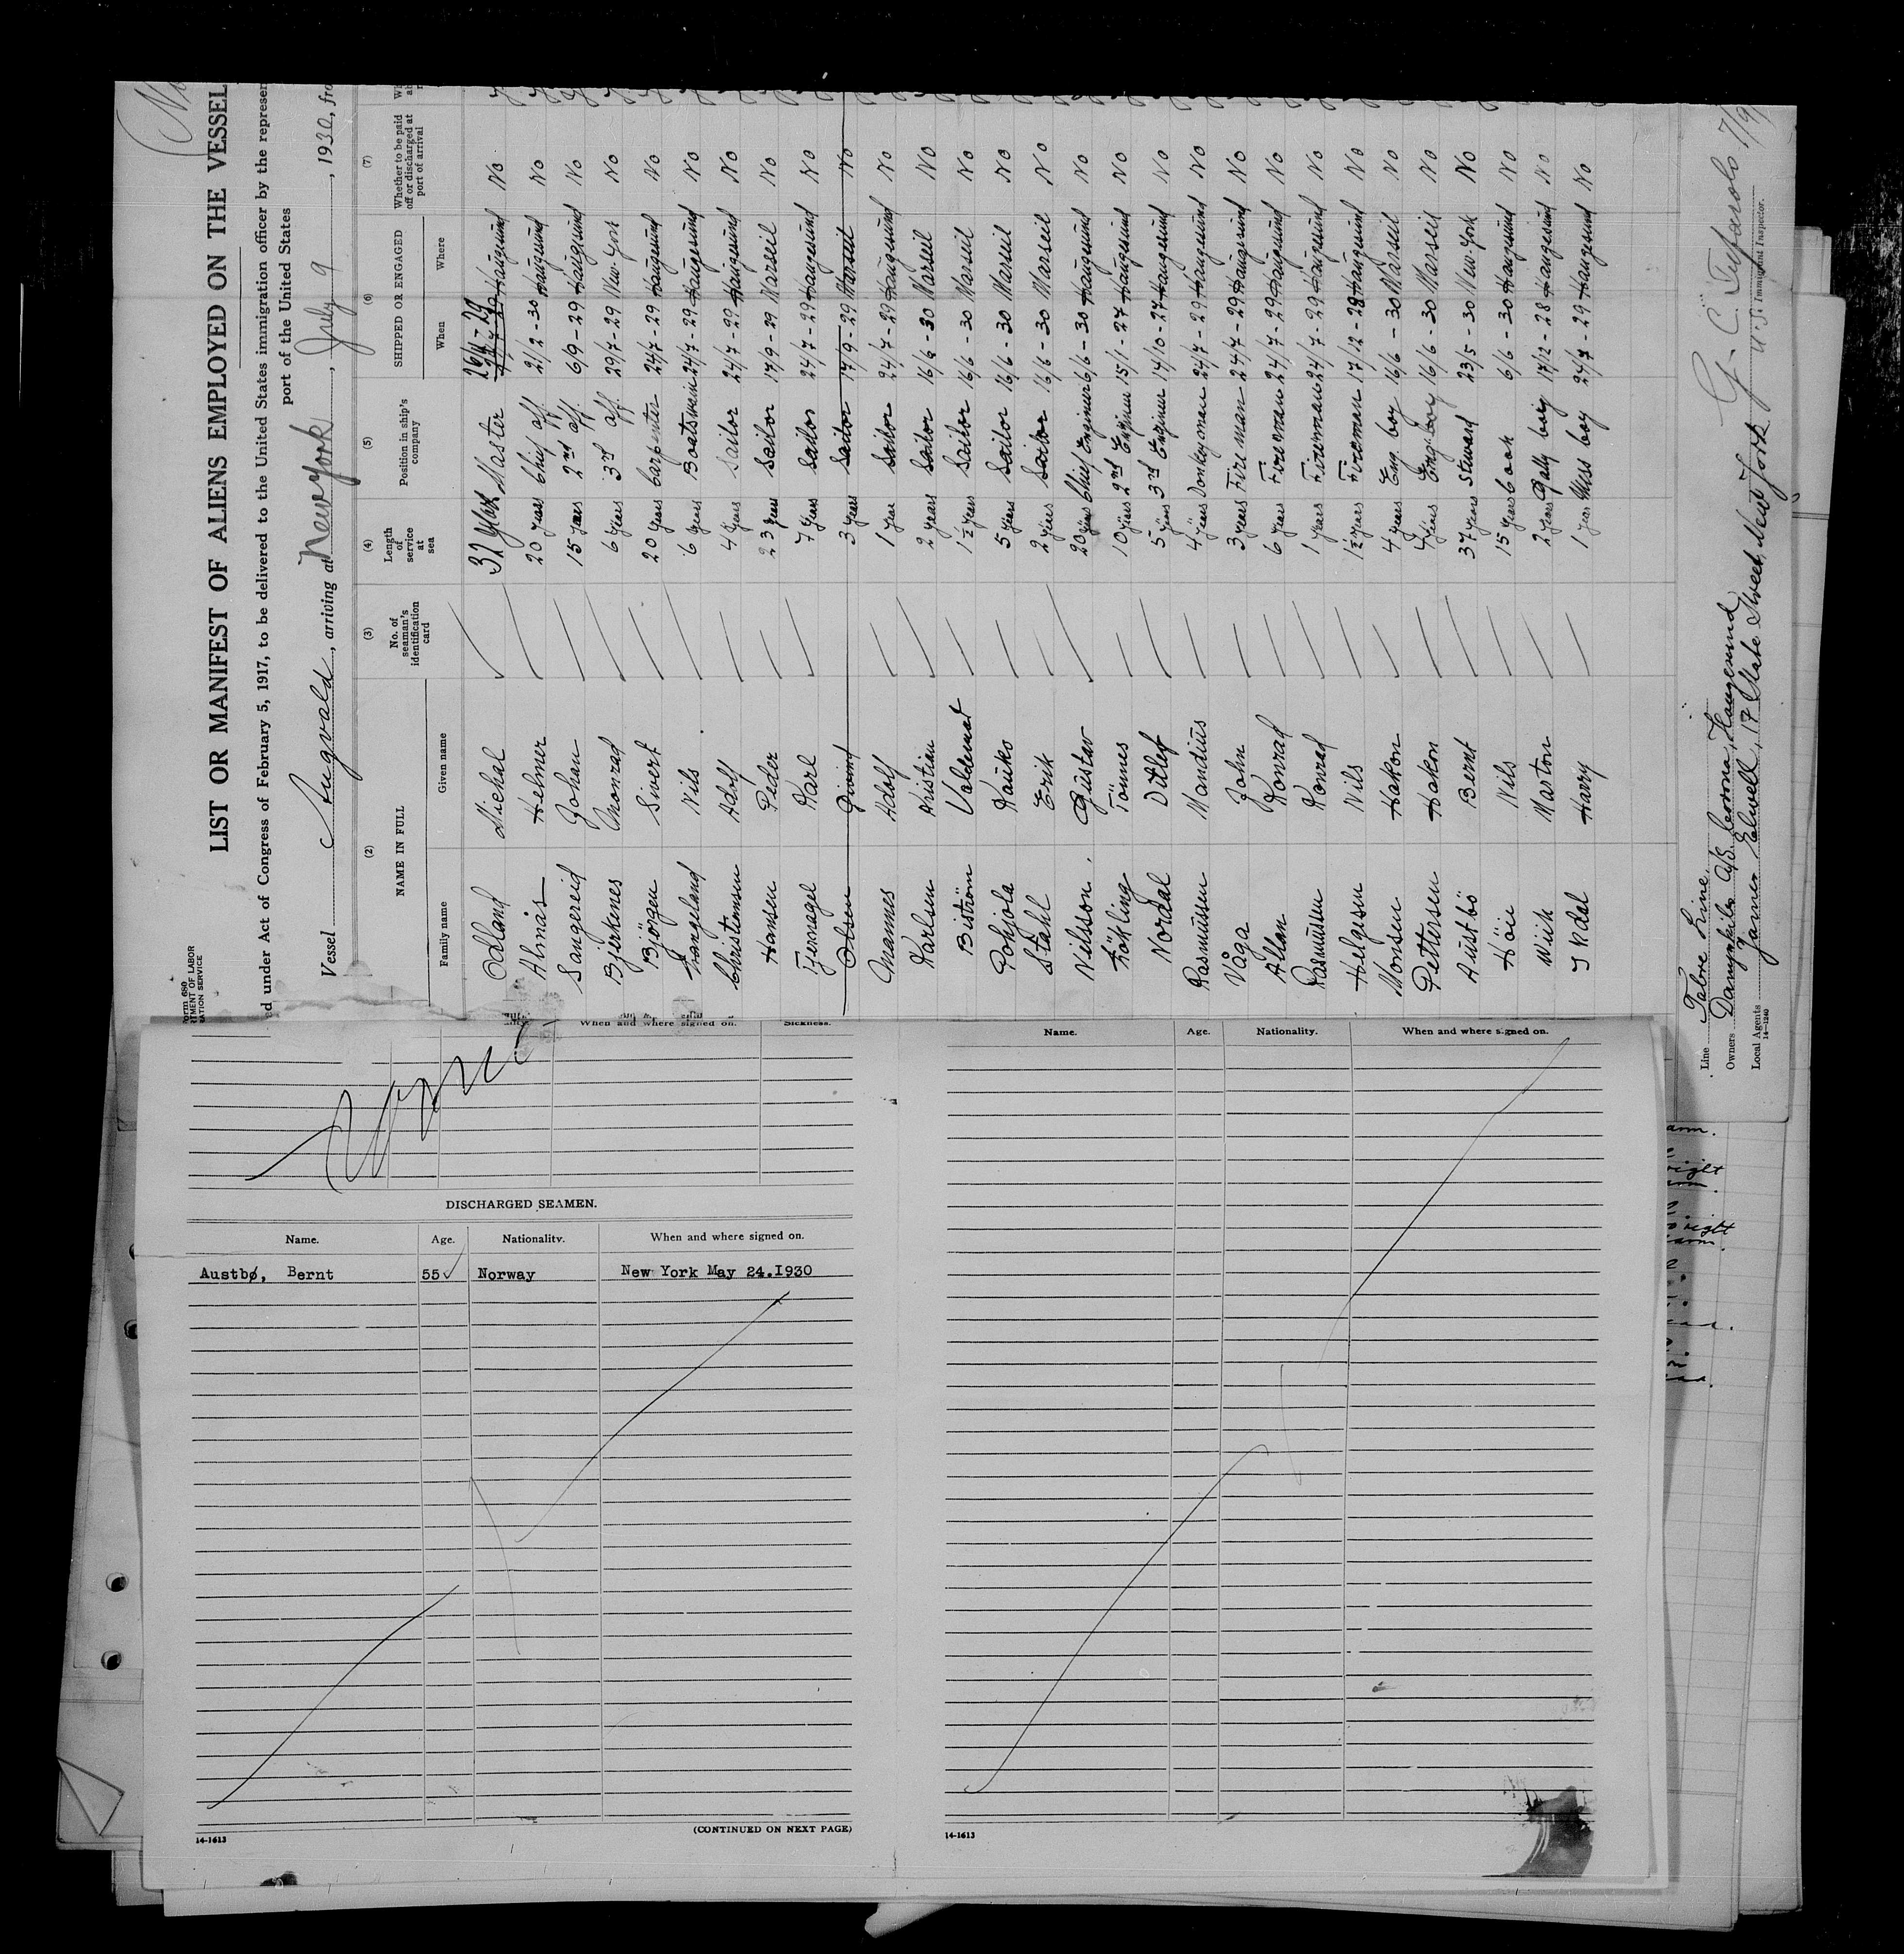 Form 680
LIST OR MANIFEST OF ALIENS EMPLOYED ON THE VESSEL
ed under Act of Congress of February 5, 1917, to be delivered to the United States immigration officer by the represen
port of the United States
Vessel Augvald, arriving at New York, July 9, 1930, fro
(2) (3) (4) (5) (6) (7)
NAME IN FULL No. of seaman's identification card Length of service at sea Position in ship's company SHIPPED OR ENGAGED Whether to be paid off or discharged at port of arrival
Family name Given name When Where
Odland Michal 32 years Master Haugesund No
Almås Helmer 20 years Chief off. 2/2-30 Haugesund No
Sangereid Johan 15 years 2nd off. 6/9-29 Haugesund No
Bjerkenes Monrad 6 years 3rd off. 29/7-29 New-York No
Björgen Sivert 20 years Carpenter 24/7-29 Haugesund No
Haugeland Nils 6 years Boatswein 24/7-29 Haugesund No
Christensen Adolf 4 years Sailor 24/7-29 Haugesund No
Hansen Peder 23 years Sailor 17/9-29 Marseil No
Fjernagel Karl 7 years Sailor 24/7-29 Haugesund No
Olsen 3 years Sailor 17/9-29 Marseil No
Mannes Adolf 1 year Sailor 24/7-29 Haugesund No
Karlsen Kristian 2 years Sailor 16/6-30 Marseil No
Biström Valdemar 1½ years Sailor 16/6-30 Marseil No
Pohjola Kauko 5 years Sailor 16/6-30 Marseil No
Stahl Erik 2 years Sailor 16/6-30 Marseil No
Nilsson. Gustav 20 years Chief Engineer 6/6-30 Haugesund No
Lökling Tönnes 10 years 2nd Engineer 15/1-27 Haugesund No
Nordal Ditlef 5 years 3rd Engineer 14/10-27 Haugesund No
Rasmussen Mandius 4 years Donkeyman 24/7-29 Haugesund No
Våga John 3 years Fireman 24/7-29 Haugesund No
Allan Konrad 6 years Fireman 24/7-29 Haugesund No
Rasmussen Konrad 1 years Fireman 24/7-29 Haugesund No
Helgesen Nils 1½ years Fireman 17/12-28 Haugesund No
Monsen Hakon 4 years Eng. boy 16/6-30 Marseil No
Pettersen Hakon 4 years Eng. boy 16/6-30 Marseil No
Austbö Bernt 37 years Steward 23/5-30 New-York No
Höie Nils 15 years Cook 6/6-30 Haugesund No
Wiik Marton 2 years Gally boy 17/12-28 Haugesund No
Harry 1 year Mess boy 24/7-29 Haugesund No
Line Fabre Line.
Owners Dampskibs A/S. Corona, Haugesund
Local Agents James Elwell, 17 State Street, New York
14-1240
U.S. Immigrant Inspector.
When and where signed on. Sickness.
DISCHARGED SEAMEN.
Name. Age. Nationality. When and where signed on.
Austbø, Bernt 55 Norway New York May 24.1930
(CONTINUED ON NEXT PAGE)
14-1613
Name. Age. Nationality. When and where signed on.
14-1613